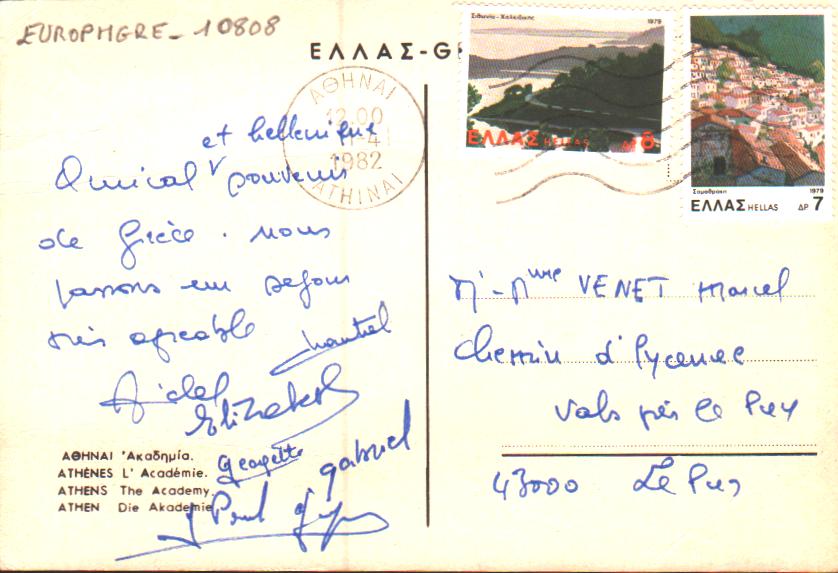 EUROPHGRE - 10808
ΕΛΛΑΣ-G
Σιθωνία - Χαλκιδικῆς 1979
ΕΛΛΑΣ HELLAS ΔΡ 8
Σαμοθράκη 1979
ΕΛΛΑΣ HELLAS ΔΡ 7
ΑΘΗΝΑΙ
12.00
1982
ATHINAI
et hellenique
Amical souvenir
de Grèce. nous
passons un séjour
très agréable
Chantal
Elizabeth
Georgette
gabriel
Paul
ΑΘΗΝΑΙ 'Ακαδημία.
ATHÈNES L' Académie.
ATHENS The Academy.
ATHEN Die Akademie
Mr - Mme VENET Marcel
Chemin d'
Vals près Le Puy
43000 Le Puy